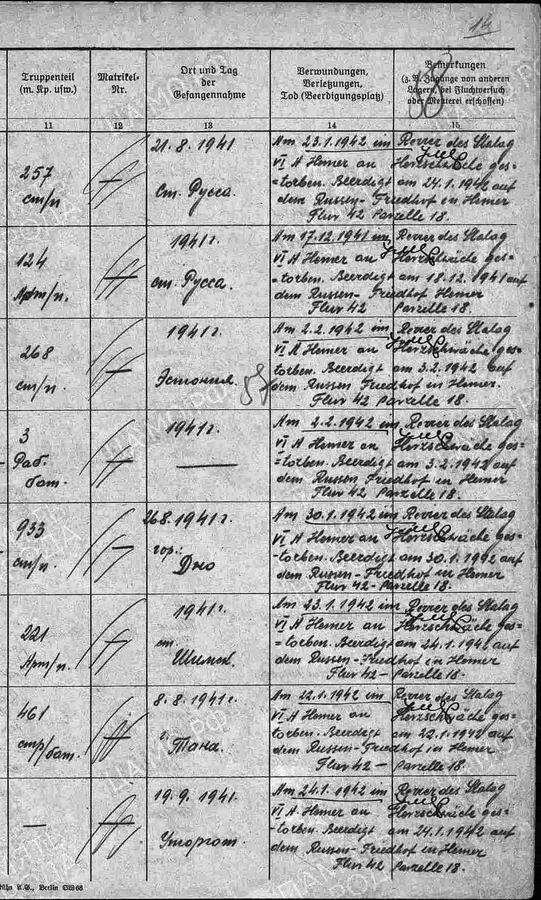 14
88
Truppenteil
(m. Kp. usw.)
Matrikel-
Nr.
Ort und Tag
der
Gefangennahme
Verwundungen,
Verletzungen,
Tod (Beerdigungsplatz)
Bemerkungen
(z. B. Zugänge von anderen
Lagern, bei Fluchtversuch
oder Meuterei erschossen)
11
12
13
14
15
257
ст/п
21.8.1941
ст. Русса.
Am 23.1.1942 im Revier des Stalag
VI A Hemer an Herzschwäche ges=
=torben. Beerdigt am 24.1.1942 auf
dem Russen-Friedhof in Hemer
Flur 42 Parzelle 18.
124
Арт/п.
1941г.
ст. Русса.
Am 17.12.1941 im Revier des Stalag
VI A Hemer an Herzschwäche ges=
=torben. Beerdigt am 18.12.1941 auf
dem Russen-Friedhof Hemer
Flur 42 Parzelle 18.
268
ст/п.
1941г.
Эстония.
Am 2.2.1942 im Revier des Stalag
VI A Hemer an Herzschwäche ges=
=torben. Beerdigt am 3.2.1942 auf
dem Russen Friedhof in Hemer.
Flur 42 Parzelle 18.
3
Раб.
бат.
1941г.
Am 2.2.1942 im Revier des Stalag
VI A Hemer an Herzschwäche ges=
=torben. Beerdigt am 3.2.1942 auf
dem Russen Friedhof in Hemer
Flur 42 Parzelle 18.
933
ст/п.
26.8.1941г.
гор.
Дно
Am 30.1.1942 im Revier des Stalag
VI A Hemer an Herzschwäche ges=
=torben. Beerdigt am 30.1.1942 auf
dem Russen-Friedhof in Hemer
Flur 42 - Parzelle 18.
221
Арт/п.
1941г.
ст.
Шимск.
Am 23.1.1942 im Revier des Stalag
VI A Hemer an Herzschwäche ges=
=torben. Beerdigt am 24.1.1942 auf
dem Russen-Friedhof in Hemer
Flur 42 - Parzelle 18.
461
стр/бат.
8.8.1941г.
Am 22.1.1942 im Revier des Stalag
VI A Hemer an Herzschwäche ges=
=torben. Beerdigt am 22.1.1942 auf
dem Russen-Friedhof in Hemer
Flur 42 - Parzelle 18.
—
19.9.1941.
Уторгош.
Am 24.1.1942 im Revier des Stalag
VI A Hemer an Herzschwäche ges=
=torben. Beerdigt am 24.1.1942 auf
dem Russen-Friedhof in Hemer
Flur 42 Parzelle 18.
A.G., Berlin SW 68